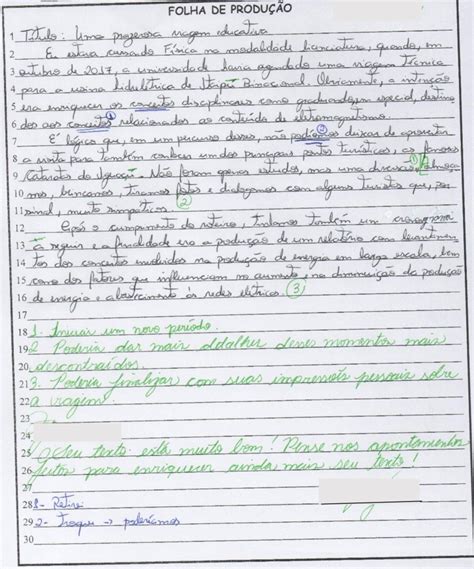 FOLHA DE PRODUÇÃO
1 Título: Uma prazerosa viagem educativa
2 Eu estava cursando Física na modalidade licenciatura, quando, em
3 outubro de 2017, a universidade havia agendado uma viagem técnica
4 para a usina hidrelétrica de Itaipú Binacional. Obviamente, a intenção
5 era enriquecer os conceitos disciplinares como graduandos em especial, destina
6 dos aos conceitos relacionados ao conteúdo de eletromagnetismo.
7 É lógico que, em um percurso desses, não podíamos deixar de aproveitar
8 a visita para também conhecer um dos principais pontos turísticos, as famosas
9 Cataratas do Iguaçu. Não foram apenas estudos, mas uma diversão.
10 mos, brincamos, tiramos fotos e dialogamos com alguns turistas que, por
11 sinal, muito simpáticos. 2
12 Após o cumprimento do roteiro, tínhamos também um cronograma
13 a seguir e a finalidade era a produção de um relatório com levantamen
14 tos dos conceitos envolvidos na produção de energia em larga escala, bem
15 como dos fatores que influenciam no aumento, na diminuição da produção
16 de energia e abastecimento às redes elétricas. 3
17
18 1- Iniciar um novo período.
19 2 Poderia dar mais detalhes desses momentos mais
20 descontraídos.
21 3. Poderia finalizar com suas impressões pessoais sobre
22 a viagem.
23
24
25 O seu texto está muito bom! Pense nos apontamentos
26 feitos para enriquecer ainda mais seu texto!
27
28 1- Retire
29 2- Troque → poderíamos
30